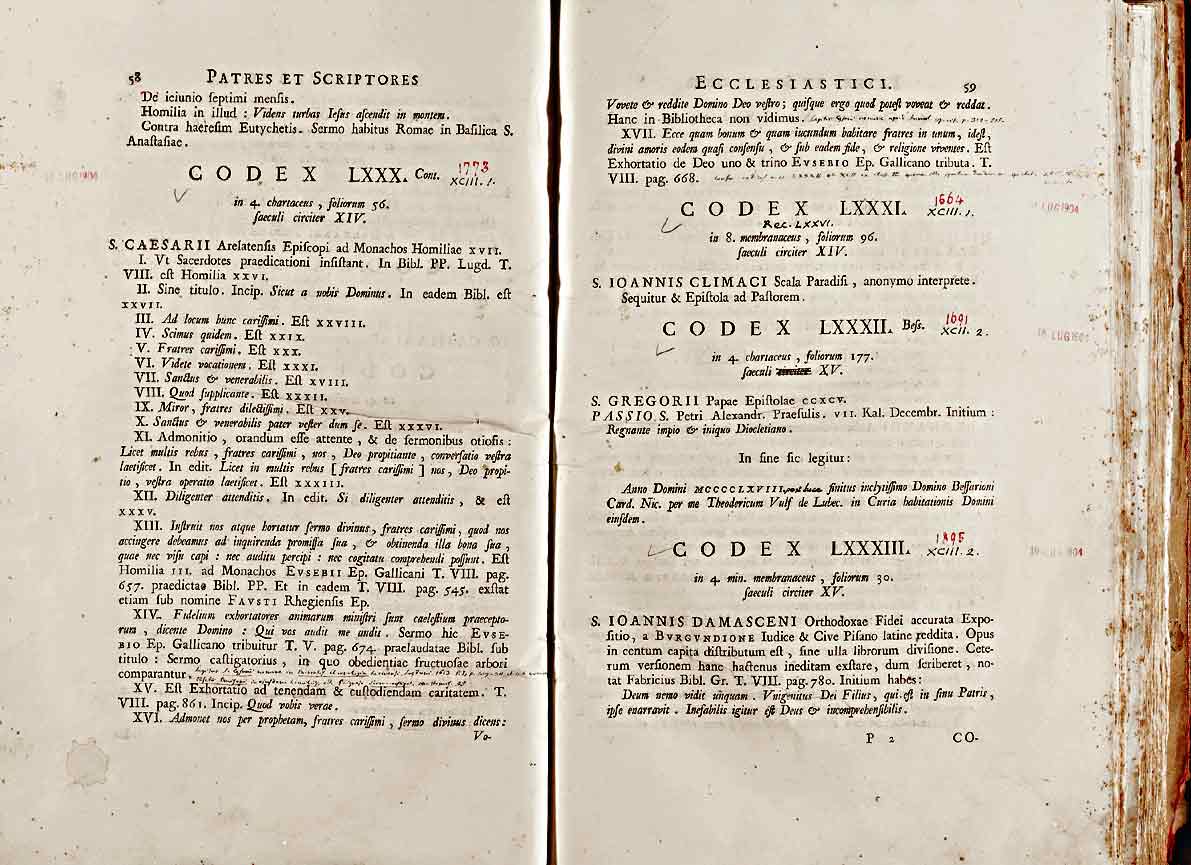 58 PATRES ET SCRIPTORES
De ieiunio ſeptimi menſis.
Homilia in illud : Videns turbas Ieſus aſcendit in montem.
Contra haereſim Eutychetis. Sermo habitus Romae in Baſilica S.
Anaſtaſiae.
1773
CODEX LXXX. Cont. XCIII. 1.
in 4. chartaceus , foliorum 56.
ſaeculi circiter XIV.
S. CAESARII Arelatenſis Epiſcopi ad Monachos Homiliae XVII.
I. Vt Sacerdotes praedicationi inſiſtant. In Bibl. PP. Lugd. T.
VIII. eſt Homilia XXVI.
II. Sine titulo. Incip. Sicut a nobis Dominus. In eadem Bibl. eſt
XXVII.
III. Ad locum hunc cariſſimi. Eſt XXVIII.
IV. Scimus quidem. Eſt XXIX.
V. Fratres cariſſimi. Eſt XXX.
VI. Videte vocationem. Eſt XXXI.
VII. Sanctus & venerabilis. Eſt XVIII.
VIII. Quod ſupplicante. Eſt XXXII.
IX. Miror, fratres dilectiſſimi. Eſt XXV.
X. Sanctus & venerabilis pater veſter dum ſe. Eſt XXXVI.
XI. Admonitio , orandum eſſe attente , & de ſermonibus otioſis :
Licet multis rebus , fratres cariſſimi , nos , Deo propitiante , converſatio veſtra
laetificet. In edit. Licet in multis rebus [ fratres cariſſimi ] nos , Deo propi-
tio , veſtra operatio laetificet. Eſt XXXIII.
XII. Diligenter attenditis. In edit. Si diligenter attenditis , & eſt
XXXV.
XIII. Inſtruit nos atque hortatur ſermo divinus, fratres cariſſimi, quod nos
accingere debeamus ad inquirenda promiſſa ſua , & obtinenda illa bona ſua ,
quae nec viſu capi : nec auditu percipi : nec cogitatu comprehendi poſſunt. Eſt
Homilia III. ad Monachos EVSEBII Ep. Gallicani T. VIII. pag.
657. praedictae Bibl. PP. Et in eadem T. VIII. pag. 545. exſtat
etiam ſub nomine FAVSTI Rhegienſis Ep.
XIV. Fidelium exhortatores animarum miniſtri ſunt caeleſtium praecepto-
rum , dicente Domino : Qui vos audit me audit . Sermo hic EVSE-
BIO Ep. Gallicano tribuitur T. V. pag. 674. praelaudatae Bibl. ſub
titulo : Sermo caſtigatorius , in quo obedientiae fructuoſae arbori
comparantur.
XV. Eſt Exhortatio ad tenendam & cuſtodiendam caritatem. T.
VIII. pag. 861. Incip. Quod vobis verae.
XVI. Admonet nos per prophetam, fratres cariſſimi , ſermo divinus dicens :
Vo-
ECCLESIASTICI. 59
Vovete & reddite Domino Deo veſtro ; quiſque ergo quod poteſt voveat & reddat.
Hanc in Bibliotheca non vidimus.
XVII. Ecce quam bonum & quam iucundum habitare fratres in unum, ideſt,
divini amoris eodem quaſi conſenſu , & ſub eadem fide, & religione viventes. Eſt
Exhortatio de Deo uno & trino EVSEBIO Ep. Gallicano tributa. T.
VIII. pag. 668.
1664
CODEX LXXXI. XCIII. 1.
Rec. LXXVI.
in 8. membranaceus , foliorum 96.
ſaeculi circiter XIV.
S. IOANNIS CLIMACI Scala Paradiſi , anonymo interprete.
Sequitur & Epiſtola ad Paſtorem.
1691
CODEX LXXXII. Beſſ. XCII. 2.
in 4. chartaceus , foliorum 177.
ſaeculi circiter XV.
S. GREGORII Papae Epiſtolae CCXCV.
PASSIO S. Petri Alexandr. Praeſulis. VII. Kal. Decembr. Initium :
Regnante impio & iniquo Diocletiano.
In fine ſic legitur :
Anno Domini MCCCCLXVIII. finitus inclytiſſimo Domino Beſſarioni
Card. Nic. per me Theodericum Vulf de Lubec. in Curia habitationis Domini
eiuſdem.
1895
CODEX LXXXIII. XCIII. 2.
in 4. min. membranaceus , foliorum 30.
ſaeculi circiter XV.
S. IOANNIS DAMASCENI Orthodoxae Fidei accurata Expo-
ſitio, a BVRGVNDIONE Iudice & Cive Piſano latine reddita. Opus
in centum capita diſtributum eſt , ſine ulla librorum diviſione. Cete-
rum verſionem hanc hactenus ineditam exſtare, dum ſcriberet , no-
tat Fabricius Bibl. Gr. T. VIII. pag. 780. Initium habes :
Deum nemo vidit unquam . Vnigenitus Dei Filius, qui eſt in ſinu Patris,
ipſe enarravit . Inefabilis igitur eſt Deus & incomprehenſibilis.
P 2 CO-